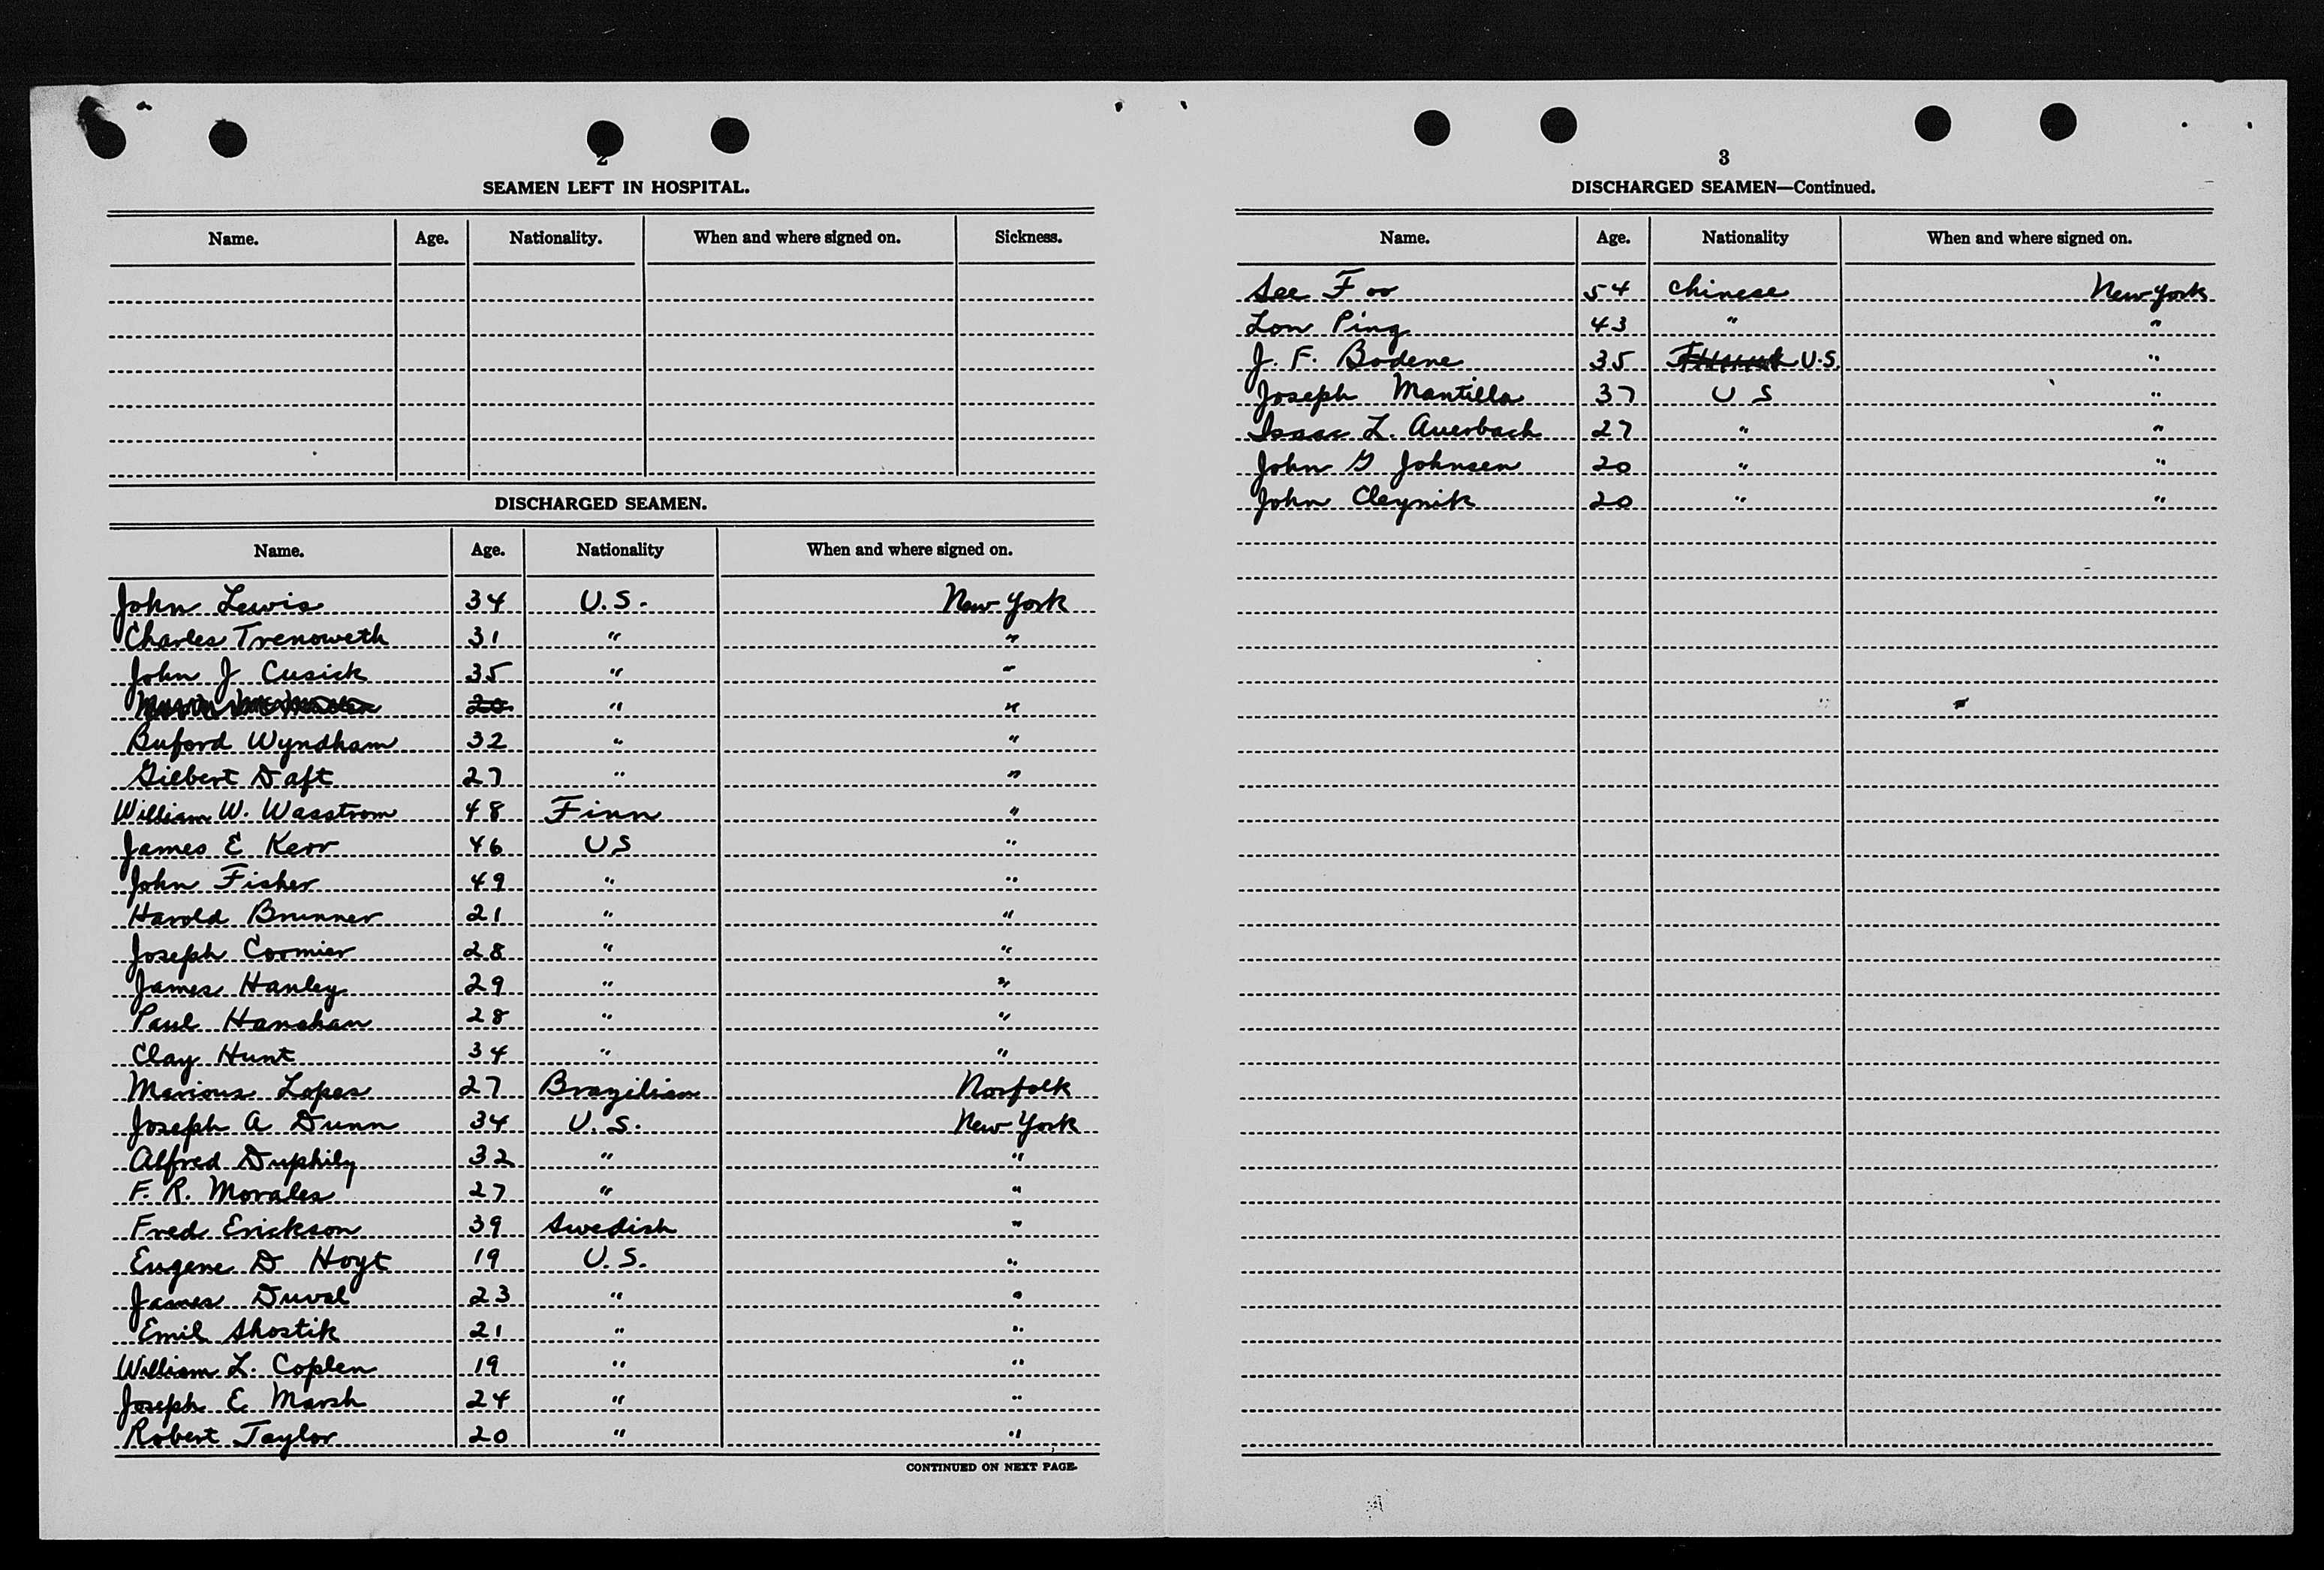 2
SEAMEN LEFT IN HOSPITAL.
Name. Age. Nationality. When and where signed on. Sickness.
DISCHARGED SEAMEN.
Name. Age. Nationality When and where signed on.
John Lewis 34 U.S. New York
Charles Trenoweth 31 " "
John J Cusick 35 " "
20 " "
Buford Wyndham 32 " "
Gilbert Daft 27 " "
William W. Wasstrom 48 Finn "
James E Kerr 46 US "
John Fisher 49 " "
Harold Brunner 21 " "
Joseph Cormier 28 " "
James Hanley 29 " "
Paul Hanahan 28 " "
Clay Hunt 34 " "
Marious Lopes 27 Brazilian Norfolk
Joseph A Dunn 34 U.S. New York
Alfred Duphily 32 " "
F. R. Morales 27 " "
Fred Erickson 39 Swedish "
Eugene D Hoyt 19 U.S. "
James Duval 23 " "
Emil Shostik 21 " "
William L. Coplen 19 " "
Joseph E Marsh 24 " "
Robert Taylor 20 " "
CONTINUED ON NEXT PAGE.
3
DISCHARGED SEAMEN—Continued.
Name. Age. Nationality When and where signed on.
See Foo 54 Chinese New York
Lon Ping 43 " "
J. F. Bodene 35 U.S. "
Joseph Mantilla 37 U S "
Isaac L. Auerbach 27 " "
John G Johnsen 20 " "
John Cleynik 20 " "